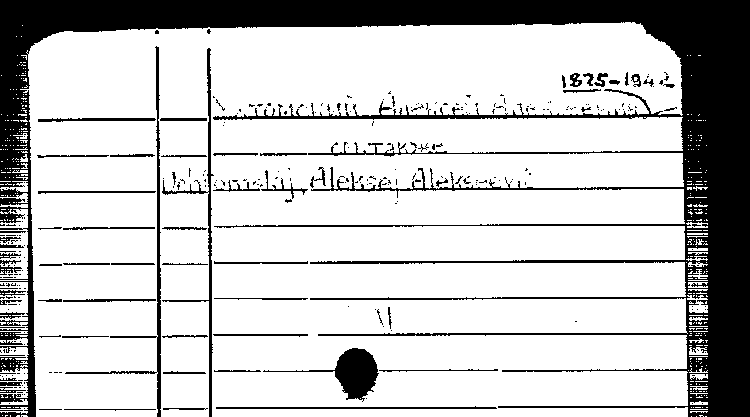 1875-1942
Ухтомский, Алексей Алексеевич
см. также
Uchtomskij, Aleksej Alekseevič